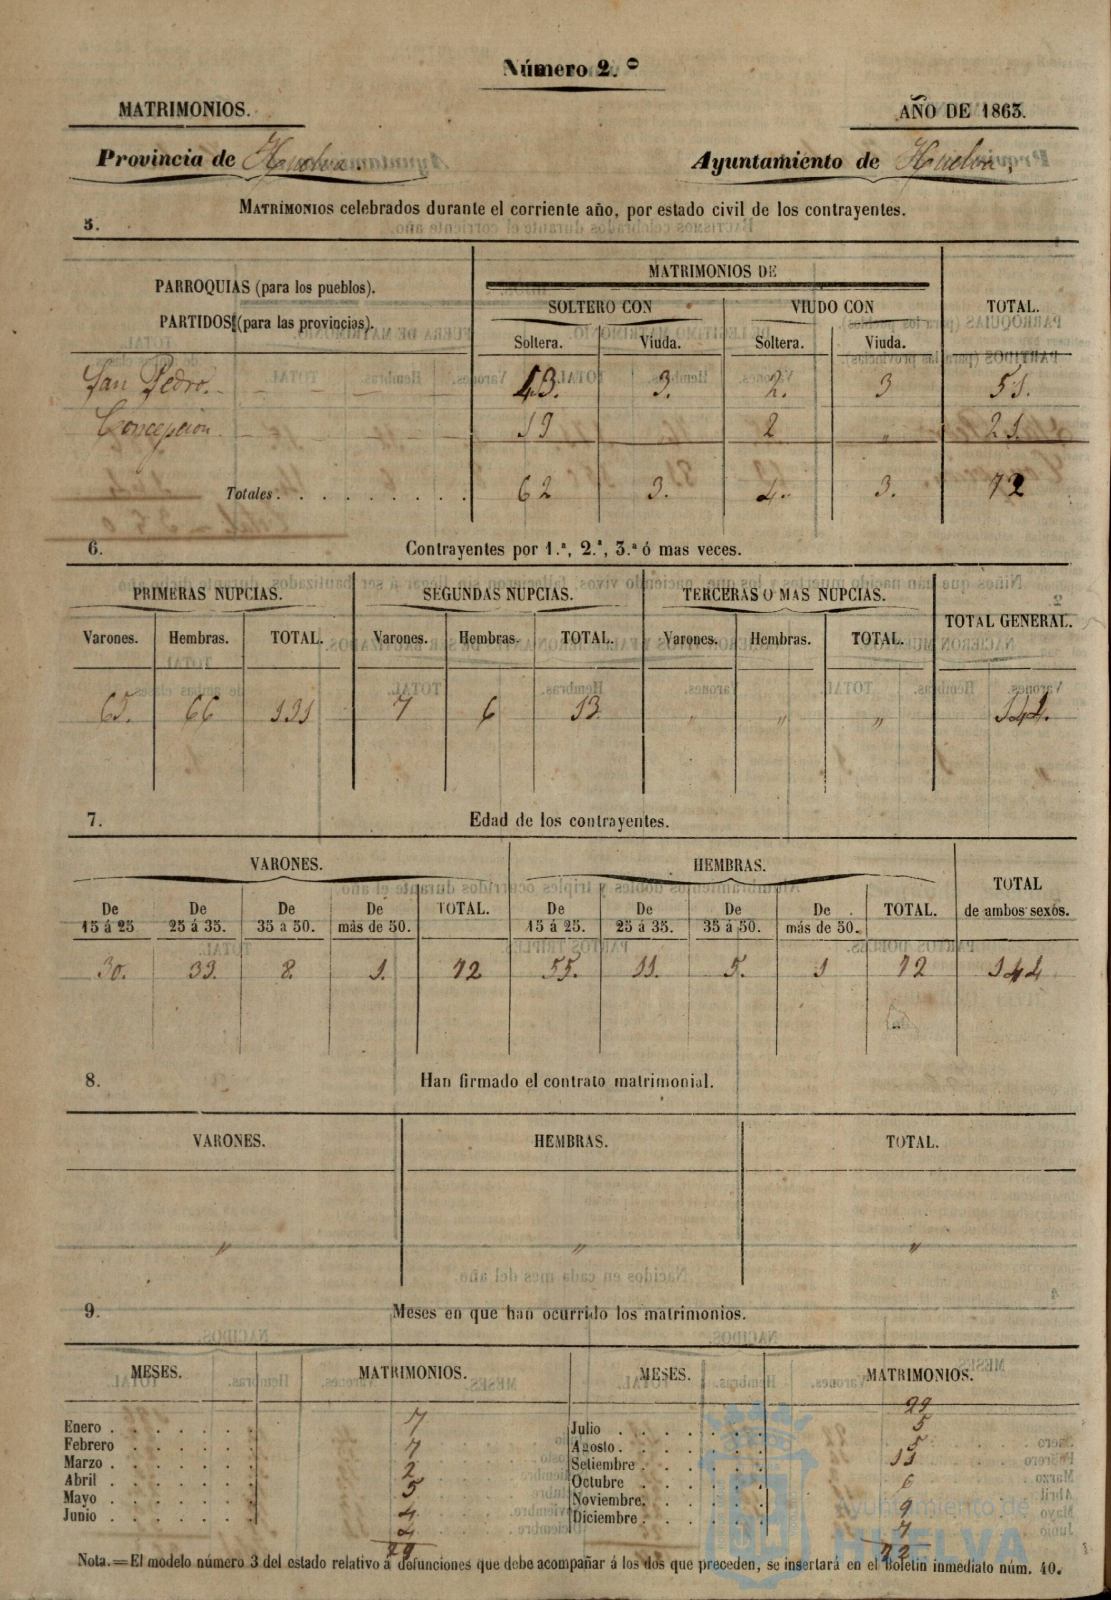 Número 2.º
MATRIMONIOS. AÑO DE 1863.
Provincia de Huelva. Ayuntamiento de Huelva.
5. MATRIMONIOS celebrados durante el corriente año, por estado civil de los contrayentes.
PARROQUIAS (para los pueblos).
PARTIDOS (para las provincias).
MATRIMONIOS DE
SOLTERO CON VIUDO CON TOTAL.
Soltera. Viuda. Soltera. Viuda.
San Pedro. 43. 3. 2. 3 51.
Concepcion 19 2 " 21.
Totales. 62 3. 4. 3. 72
6. Contrayentes por 1.ª, 2.ª, 3.ª ó mas veces.
PRIMERAS NUPCIAS. SEGUNDAS NUPCIAS. TERCERAS O MAS NUPCIAS. TOTAL GENERAL.
Varones. Hembras. TOTAL. Varones. Hembras. TOTAL. Varones. Hembras. TOTAL.
65. 66 131 7 6 13 " " " 144.
7. Edad de los contrayentes.
VARONES. HEMBRAS. TOTAL de ambos sexos.
De 15 á 25 De 25 á 35. De 35 a 50. De más de 50. TOTAL. De 15 á 25. De 25 á 35. De 35 á 50. De más de 50. TOTAL.
30. 33. 8. 1. 72 55. 11. 5. 1 72 144
8. Han firmado el contrato matrimonial.
VARONES. HEMBRAS. TOTAL.
" " "
9. Meses en que han ocurrido los matrimonios.
MESES. MATRIMONIOS. MESES. MATRIMONIOS.
29
Enero 7 Julio 5
Febrero 7 Agosto 5
Marzo 2 Setiembre 11
Abril 5 Octubre 6
Mayo 4 Noviembre 9
Junio 4 Diciembre 7
29 72
Nota.=El modelo número 3 del estado relativo á defunciones que debe acompañar á los dos que preceden, se insertará en el Boletin inmediato núm. 40.
Ayuntamiento de
HUELVA